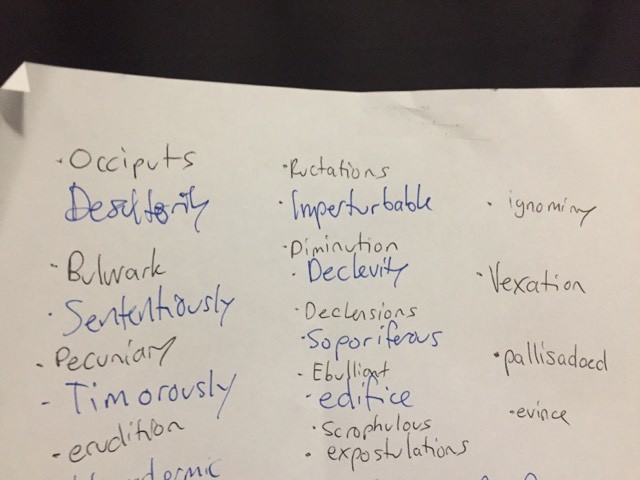 ·Occiputs
Desultorily
·Bulwark
·Sententiously
·Pecuniary
-Timorously
-erudition
·Ructations
·Imperturbable
·Diminution
·Declevity
·Declensions
·Soporiferous
-Ebullient
·edifice
·Scrophulous
·expostulations
·ignominy
·Vexation
·pallisadoed
·evince